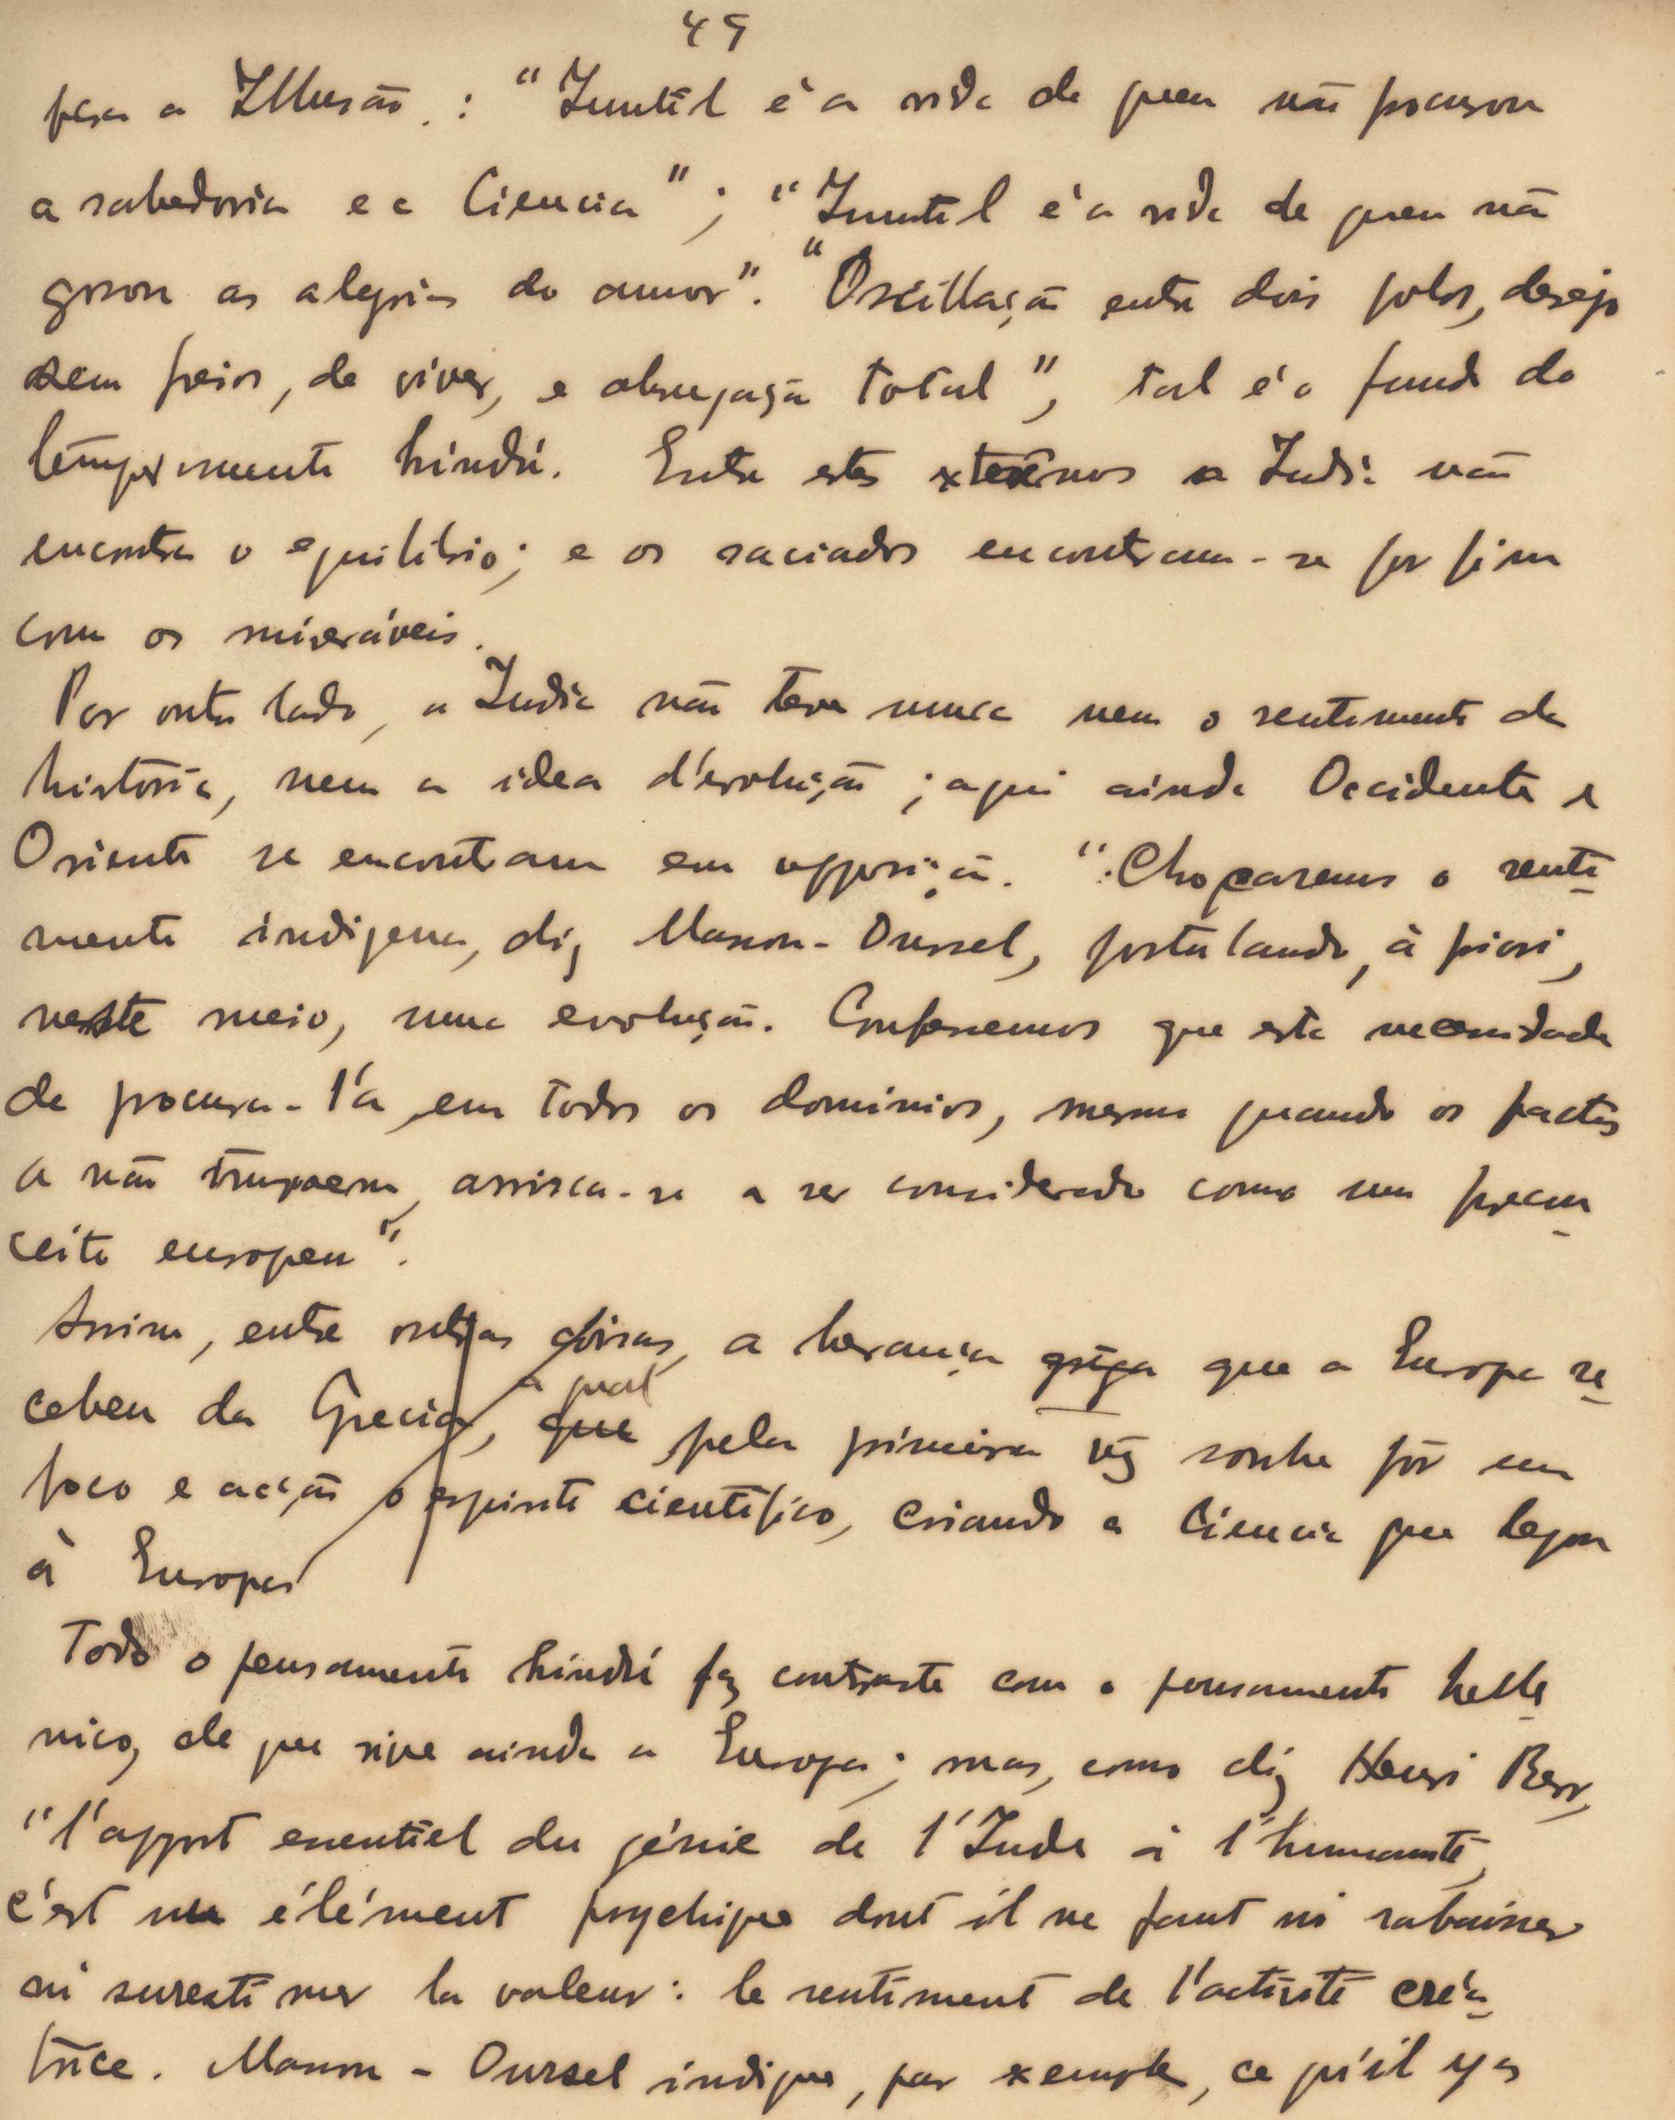 49
para a Illusão. : "Inutil é a vida de quem não procurou
a sabedoria e a Ciencia"; "Inutil é a vida de quem não
gosou as alegrias do amor". "Oscillação entre dois polos, desejo
sem freios, de viver, e abnegação total", tal é o fundo do
temperamento hindú. Entre estes extremos a India não
encontra o equilibrio; e os saciados encontram-se por fim
com os miseráveis.
Por outro lado, a India não teve nunca nem o sentimento da
historia, nem a idea d'evolução; aqui ainda Occidente e
Oriente se encontram em opposição. "Chocaremos o senti-
mento indigena, diz Masson-Oursel, postulando, à priori,
neste meio, uma evolução. Confessemos que esta necessidade
de procura-l'a, em todos os dominios, mesmo quando os factos
a não impoem, arrisca-se a ser considerado como um precon-
ceito europeu".
Assim, entre outras coisas, a herança grega que a Europa re-
cebeu da Grecia, que a qual pela primeira vez soube pôr em
foco e acção o espirito cientifico, criando a Ciencia que legou
à Europa
Todo o pensamento hindú faz contraste com o pensamento helle-
nico, de que vive ainda a Europa; mas, como diz Henri Berr,
"l'apport essentiel du génie de l'Inde à l'humanité,
c'est un élément psychique dont il ne faut ni rabaisser
ni surestimer la valeur: le sentiment de l'activité créa-
trice. Masson-Oursel indique, par exemple, ce qu'il y a